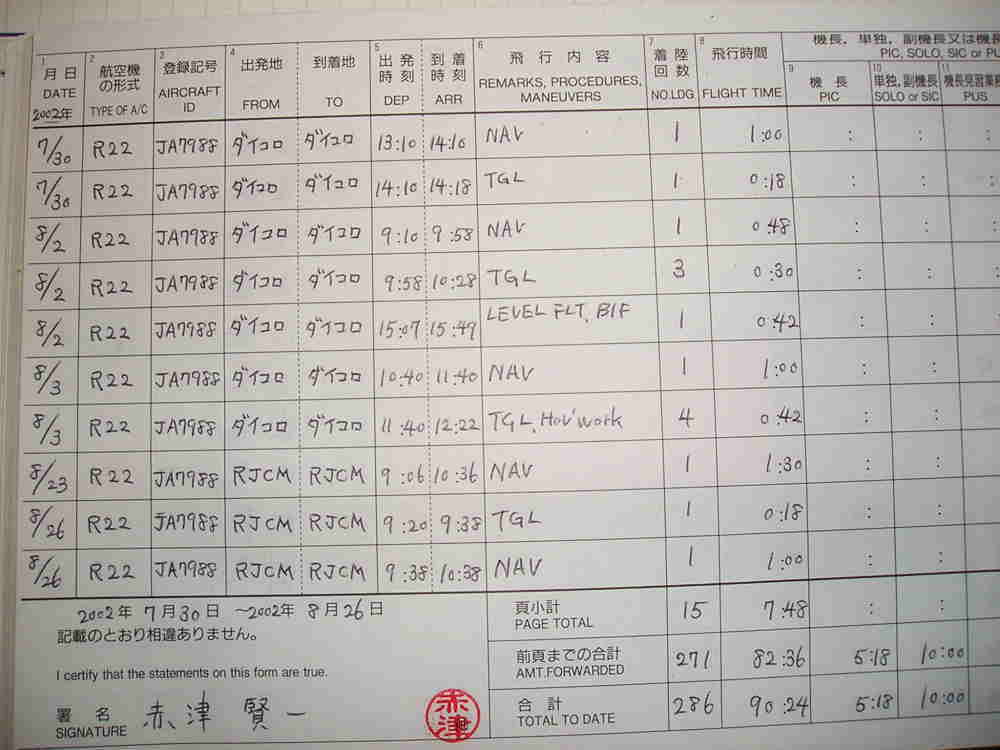 機長，単独，副機長又は機長
PIC, SOLO, SIC or PU
1 月日 DATE 2002年 2 航空機の形式 TYPE OF A/C 3 登録記号 AIRCRAFT ID 4 出発地 FROM 到着地 TO 5 出発時刻 DEP 到着時刻 ARR 6 飛行内容 REMARKS, PROCEDURES, MANEUVERS 7 着陸回数 NO.LDG 8 飛行時間 FLIGHT TIME 9 機長 PIC 10 単独, 副機長 SOLO or SIC 11 機長見習業務 PUS
7/30 R22 JA7988 ダイコロ ダイコロ 13:10 14:10 NAV 1 1:00 : : :
7/30 R22 JA7988 ダイコロ ダイコロ 14:10 14:18 TGL 1 0:18 : : :
8/2 R22 JA7988 ダイコロ ダイコロ 9:10 9:58 NAV 1 0:48 : : :
8/2 R22 JA7988 ダイコロ ダイコロ 9:58 10:28 TGL 3 0:30 : : :
8/2 R22 JA7988 ダイコロ ダイコロ 15:07 15:49 LEVEL FLT, BIF 1 0:42 : : :
8/3 R22 JA7988 ダイコロ ダイコロ 10:40 11:40 NAV 1 1:00 : : :
8/3 R22 JA7988 ダイコロ ダイコロ 11:40 12:22 TGL, Hov'work 4 0:42 : : :
8/23 R22 JA7988 RJCM RJCM 9:06 10:36 NAV 1 1:30 : : :
8/26 R22 JA7988 RJCM RJCM 9:20 9:38 TGL 1 0:18 : : :
8/26 R22 JA7988 RJCM RJCM 9:38 10:38 NAV 1 1:00 : : :
2002年 7月30日 〜2002年 8月26日
記載のとおり相違ありません。
I certify that the statements on this form are true.
署名 SIGNATURE 赤津 賢一
赤津
頁小計 PAGE TOTAL 15 7:48 : :
前頁までの合計 AMT.FORWARDED 271 82:36 5:18 10:00
合計 TOTAL TO DATE 286 90:24 5:18 10:00